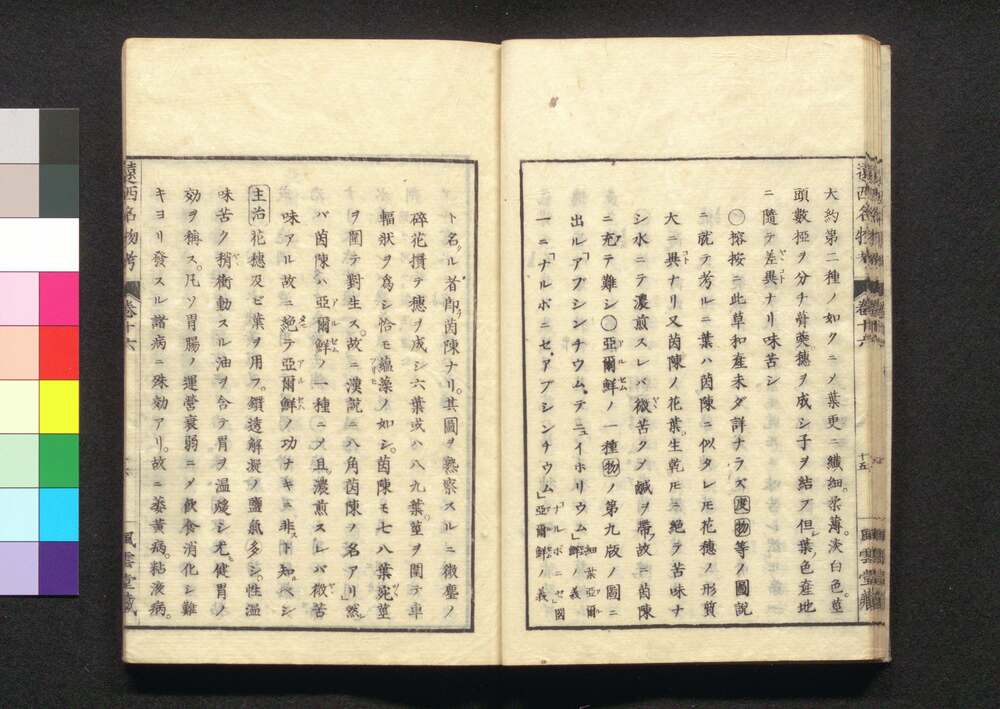 大約第二種ノ如クニメ葉更ニ纎細。柔薄。淡白色。莖
頭數椏ヲ分チ蕚𫞂穗ヲ成シ子ヲ結ブ但葉ノ色産地
ニ隨テ差異ナリ味苦シ
○榕按ニ此草和産未ダ詳ナラズ度物等ノ圖説
ニ就テ考ルニ葉ハ茵蔯ニ似タレ𪜈花穗ノ形質
大ニ異ナリ又茵蔯ノ花葉。生乾𪜈ニ絶テ苦味ナ
シ水ニテ濃煎スレバ微苦クメ鹹ヲ帶故ニ茵蔯
ニ充テ難シ○亞爾鮮ノ一種物ノ第九版ノ圖ニ
出ル「アブシンチウム、テニュイホリウム」細葉亞爾鮮ノ義
一ニ「ナルボニセ、アブシンチウム」「ナルボニセ」國亞爾鮮ノ義
ト名クル者即茵蔯ナリ。其圖ヲ熟察スルニ微塵ノ
碎花攢テ穗ヲ成シ六葉或ハ八九葉。莖ヲ圍テ車
輻狀ヲ爲シ恰モ蘊藻ノ如シ。茵蔯モ七八葉宛莖
ヲ圍テ對生ス。故ニ漢説ニ八角茵蔯ノ名アリ」然
バ茵蔯ハ亞爾鮮ノ一種ニメ且濃煎スレバ微苦
味アル故ニ絶テ亞爾鮮ノ功ナキニ非ズト知ベシ
主治花穗及ビ葉ヲ用フ。鑽透解凝ノ鹽氣多シ。性溫
味苦ク稍衝動スル油ヲ含テ胃ヲ溫煖シ尤健胃ノ
効ヲ稱ス。凡ソ胃腸ノ運營衰弱ニメ飮食消化シ難
キヨリ發スル諸病ニ殊効アリ。故ニ萎黄病。粘液病。
遠西名物考
卷十六
十五
風雲堂藏